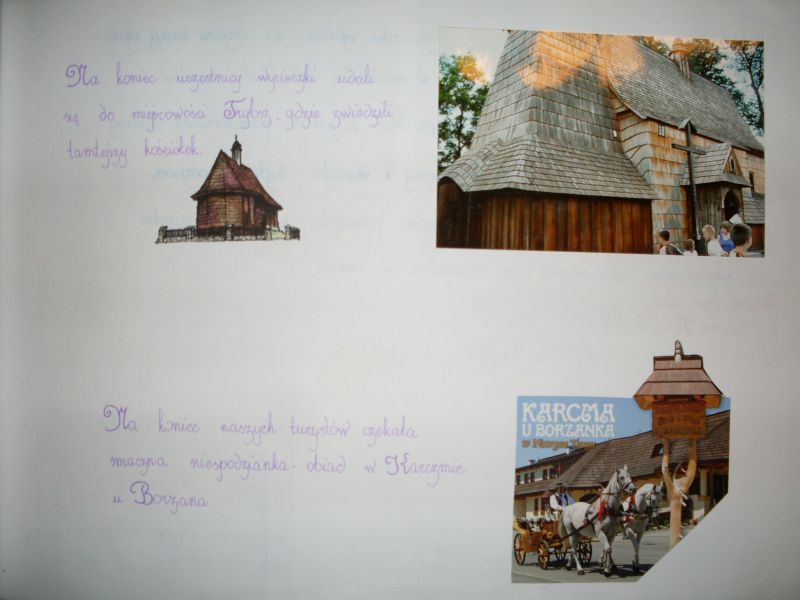 Na koniec uczestnicy wycieczki udali
się do miejscowość Trybsz, gdzie zwiedzili
tamtejszy kościółek.
Na koniec naszych turystów czekała
smaczna niespodzianka - obiad w Karczmie
u Borzana.
KARCMA
U BORZANKA
w Nowym Targu